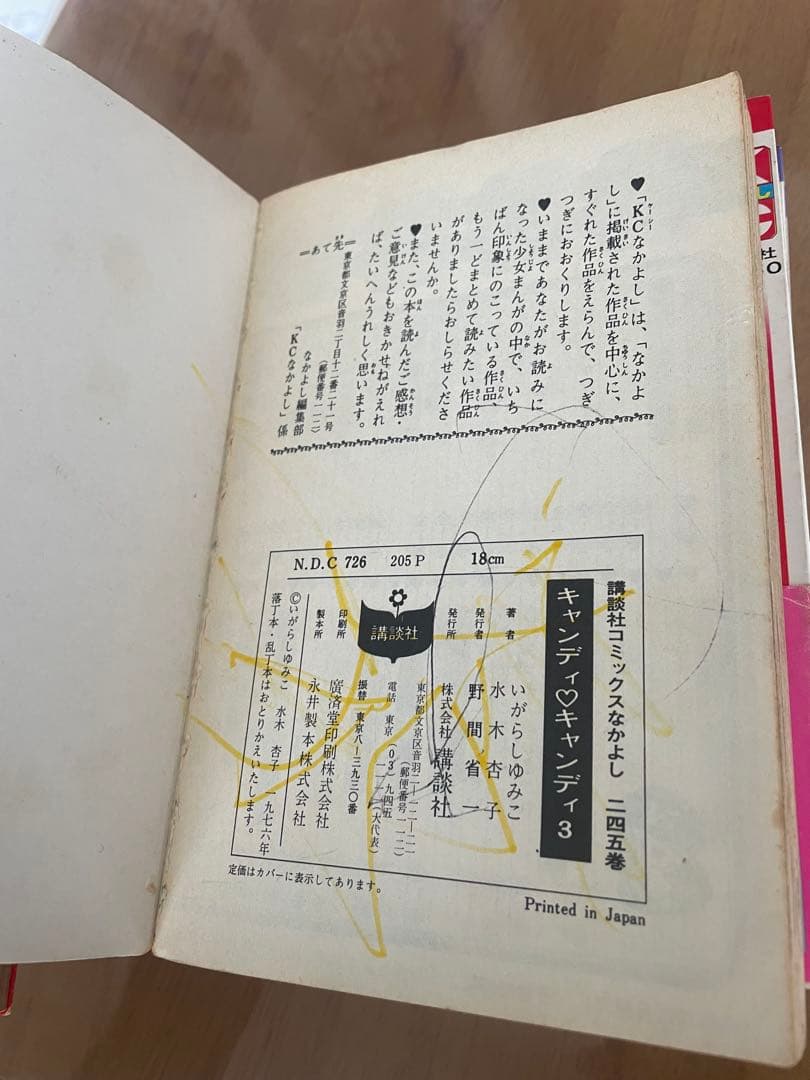 ♥「KCなかよし」は、「なかよ
し」に掲載された作品を中心に、
すぐれた作品をえらんで、つぎ
つぎにおおくりします。
♥いままであなたがお読みに
なった少女まんがの中で、いち
ばん印象にのこっている作品、
もう一どまとめて読みたい作品
がありましたらおしらせくださ
いませんか。
♥また、この本を読んだご感想・
ご意見などもおきかせねがえれ
ば、たいへんうれしく思います。
＝あて先＝
東京都文京区音羽二丁目十二番二十一号
（郵便番号一一二）
なかよし編集部
「KCなかよし」係
N.D.C 726 205P 18cm
講談社コミックスなかよし 二四五巻
キャンディ♡キャンディ3
著者 いがらしゆみこ
水木杏子
発行者 野間省一
発行所 株式会社 講談社
東京都文京区音羽二—一二—二一
（郵便番号一一二）
電話 東京（03）九四五
（大代表）
振替 東京八—三九三〇番
講談社
印刷所 廣済堂印刷株式会社
製本所 永井製本株式会社
©いがらしゆみこ 水木杏子 一九七六年
落丁本・乱丁本はおとりかえいたします。
定価はカバーに表示してあります。
Printed in Japan